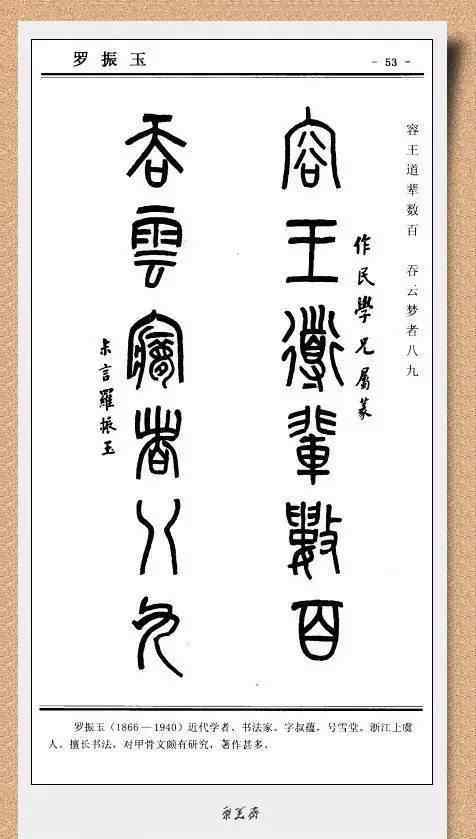 罗振玉
- 53 -
容王道辈数百 吞云梦者八九
作民學兄屬篆
容王導輩數百
吞雲夢者八九
貞言羅振玉
罗振玉（1866—1940）近代学者、书法家。字叔蕴，号雪堂。浙江上虞
人。擅长书法，对甲骨文颇有研究，著作甚多。